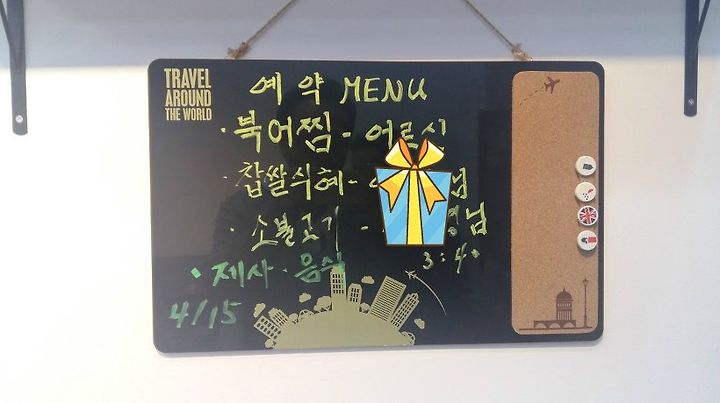 TRAVEL
AROUND
THE WORLD
예약 MENU
· 북어찜 - 어르신
· 찹쌀식혜 - 님
· 소불고기 - 경님
• 제사 · 음식 3:40
4/15